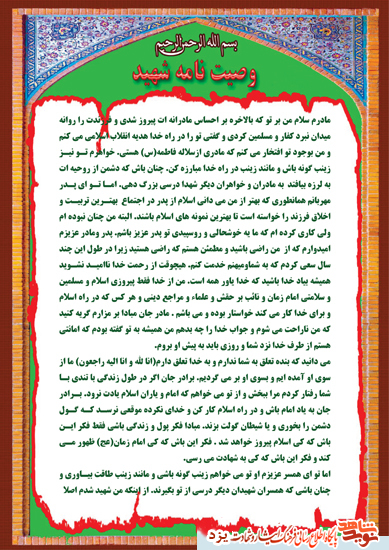 بسم الله الرحمن الرحیم
وصیت نامه شهید
مادرم سلام من بر تو که بالاخره بر احساس مادرانه ات پیروز شدی و فرزندت را روانه
میدان نبرد کفار و مسلمین کردی و گفتی تو را در راه خدا هدیه انقلاب اسلامی می کنم
و من بوجود تو افتخار می کنم که مادری ازسلاله فاطمه(س) هستی. خواهرم تو نیز
زینب گونه باش و مانند زینب در راه خدا مبارزه کن. چنان باش که دشمن از روحیه ات
به لرزه بیافتد به مادران و خواهران دیگر شهدا درسی بزرگ دهی. اما تو ای پدر
مهربانم همانطوری که بهتر از من می دانی اسلام از پدر در اجتماع بهترین تربیت و
اخلاق فرزند را خواسته است تا بهترین نمونه های اسلام باشند. البته من چنان نبوده ام
ولی کاری کرده ام که ما یه خوشحالی و روسپیدی تو پدر عزیز باشم. پدر ومادر عزیزم
امیدوارم که از من راضی باشید و مطمئن هستم که راضی هستید زیرا در طول این چند
سال سعی کردم که به شماومیهنم خدمت کنم. هیچوقت از رحمت خدا ناامید نشوید
همیشه بیاد خدا باشید که خدا یاور همه است. من از خدا فقط پیروزی اسلام و مسلمین
و سلامتی امام زمان و نائب بر حقش و علماء و مراجع دینی و هر کس که در راه اسلام
و برای خدا کار می کند خواستار بوده و می باشم . مادر جان مبادا بر مزارم گریه کنید
که من ناراحت می شوم و جواب خدا را چه بدهم من همیشه به تو گفته بودم که امانتی
هستم از طرف خدا نزد شما و روزی باید به پیش او بروم.
می دانید که بنده تعلق به شما ندارم و به خدا تعلق دارم(انا لله و انا الیه راجعون) ما از
سوی او آمده ایم و بسوی او بر می گردیم. برادر جان اگر در طول زندگی با تندی با
شما رفتار کردم مرا ببخش و از تو می خواهم که امام و یاران اسلام یادت نرود. برادر
جان به یاد امام باش و در راه اسلام کار کن و خدای نکرده موقعی نرسد که گول
دشمن را بخوری و یا شیطان گولت بزند. مبادا فکر پول و زندگی باشی فقط فکر این
باش که کی اسلام پیروز خواهد شد . فکر این باش که کی امام زمان(عج) ظهور می
کند و فکر این باش که کی به شهادت می رسی.
اما تو ای همسر عزیزم از تو می خواهم زینب گونه باشی و مانند زینب طاقت بیاوری و
چنان باشی که همسران شهیدان دیگر درسی از تو بگیرند. از اینکه من شهید شدم اصلا
نوید شاهد
پایگاه اطلاع رسانی فرهنگ ایثار و شهادت یزد